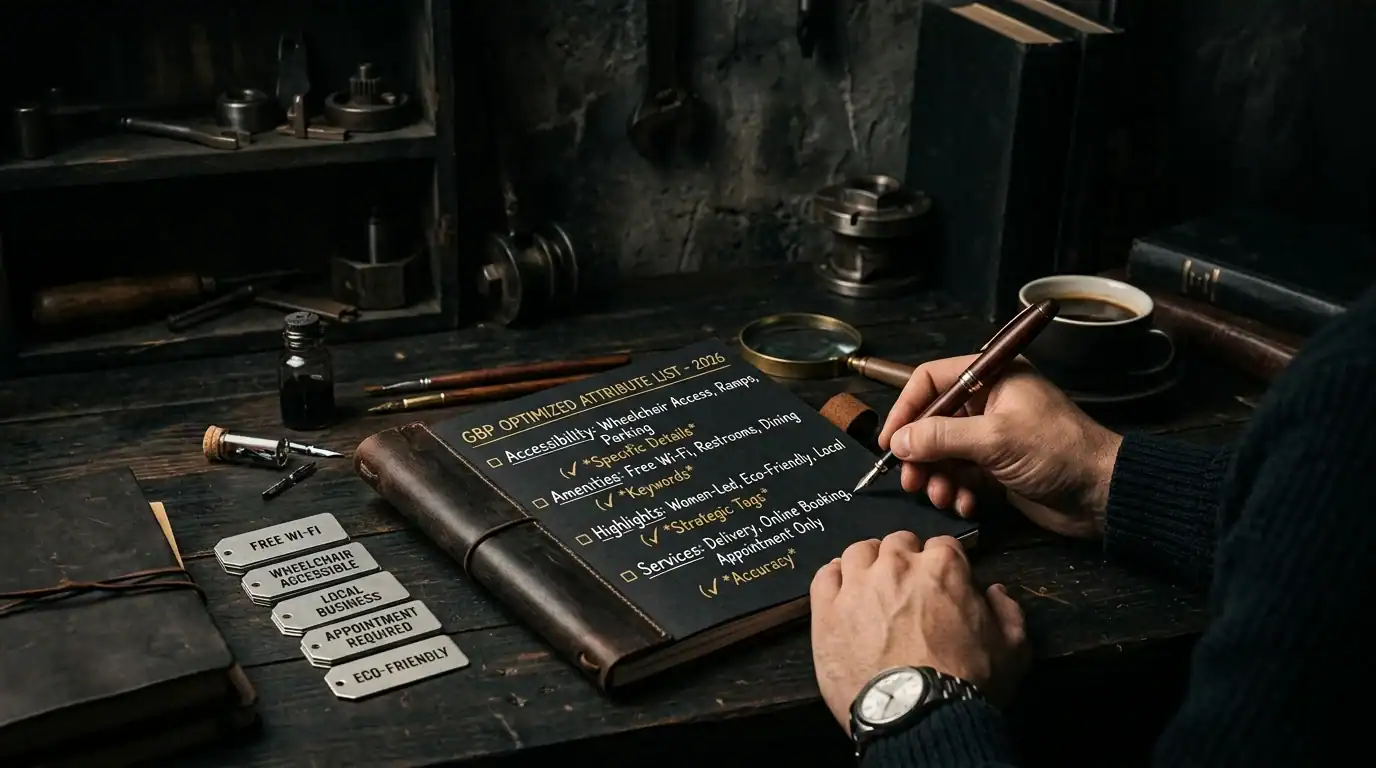 GBP OPTIMIZED ATTRIBUTE LIST - 2026
☐ Accessibility: Wheelchair Access, Ramps,
Parking
(✓ *Specific Details*
☐ Amenities: Free Wi-Fi, Restrooms, Dining
(✓ *Keywords*
☐ Highlights: Women-Led, Eco-Friendly, Local
(✓ *Strategic Tags*
☐ Services: Delivery, Online Booking,
Appointment Only
(✓ *Accuracy*
FREE WI-FI
WHEELCHAIR
ACCESSIBLE
LOCAL
BUSINESS
APPOINTMENT
REQUIRED
ECO-FRIENDLY